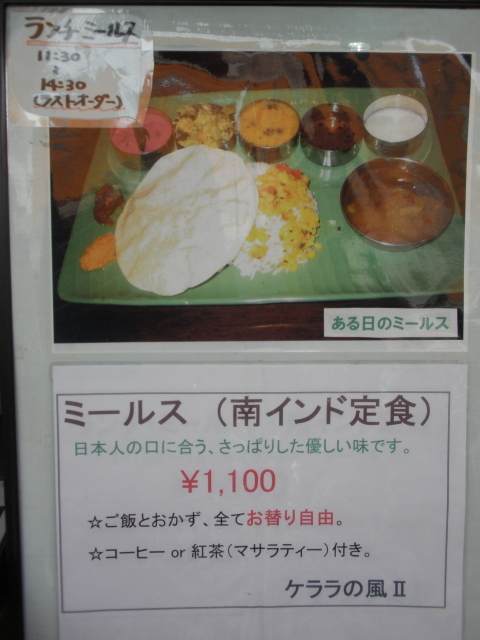 ランチミールス
11:30
～
14:30
(ラストオーダー)
ある日のミールス
ミールス （南インド定食）
日本人の口に合う、さっぱりした優しい味です。
￥1,100
☆ご飯とおかず、全てお替り自由。
☆コーヒー or 紅茶（マサラティー）付き。
ケララの風Ⅱ